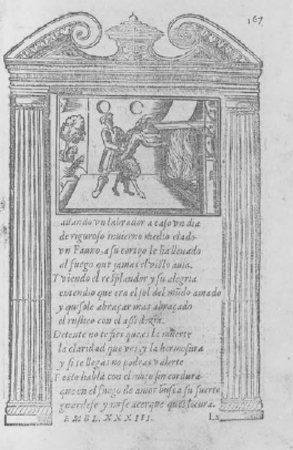 167
Z O C
allando vn labrador a caso vn dia
de riguroso inuierno medio elado
vn Fauno, a su cortijo le ha lleuado
al fuego que jamas el visto auia.
Y viendo el resplandor y su alegria
entendio que era el sol del mũdo amado
y quisole abraçar mas abraçado
el rustico con el assi dezia.
Detente no te pues la muerte
la claridad que ves, y la hermosura
y si te llegas no podras valerte
Y esto habla con el moço sin cordura
que en el fuego de amor busca su suerte
guardese y no se acerque que es locura.
EMBL. XXXIII.